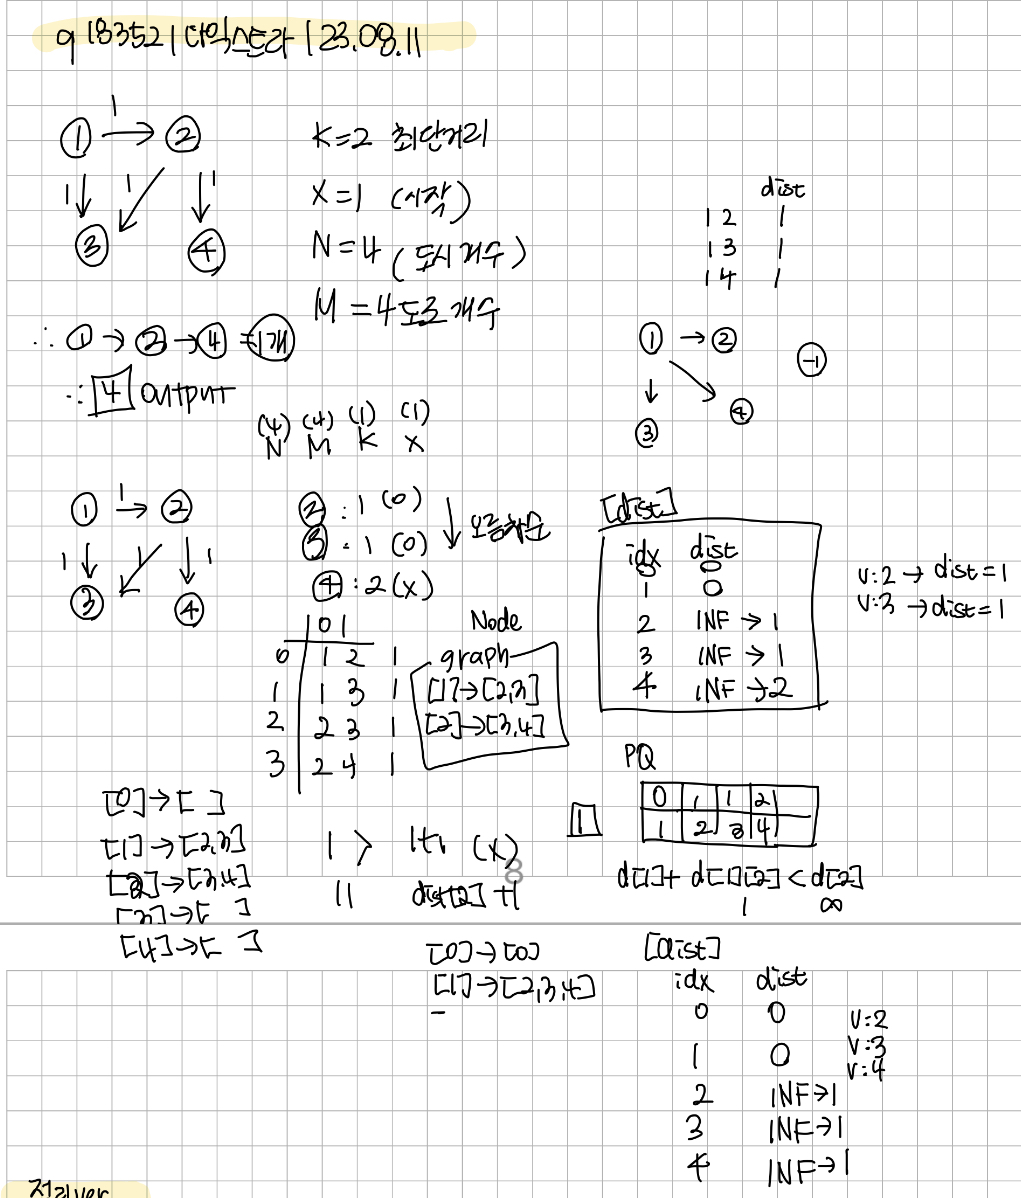 q 18352 | 다익스트라 | 23.08.11
1
① → ②
1 1 1
③ ④
K=2 최단거리
X=1 (시작)
N=4 (도시개수)
M=4 도로개수
∴ ① → ② → ④ = 1개
∴ 4 output
dist
1 2 1
1 3 1
1 4 1
① → ②
-1
③ ④
(4) (4) (1) (1)
N M K X
1
① → ②
1 1 1
③ ④
② : 1 (0)
③ : 1 (0)
④ : 2 (x)
↓ 오름차순
0 1
0 1 2 1
1 1 3 1
2 2 3 1
3 2 4 1
Node
graph
[1]→[2,3]
[2]→[3,4]
[dist]
idx dist
0 0
1 0
2 INF → 1
3 INF → 1
4 INF → 2
v:2 → dist=1
v:3 → dist=1
PQ
1
0 1 1 2
1 2 3 4
d[1]+ d[1][2] < d[2]
1 ∞
[0]→[ ]
[1]→[2,3]
[2]→[3,4]
[3]→[ ]
[4]→[ ]
1 > 1+1 (x)
11 dist[2] +1
[0]→[0]
[1]→[2,3,4]
[dist]
idx dist
0 0
1 0
2 INF→1
3 INF→1
4 INF→1
v:2
v:3
v:4